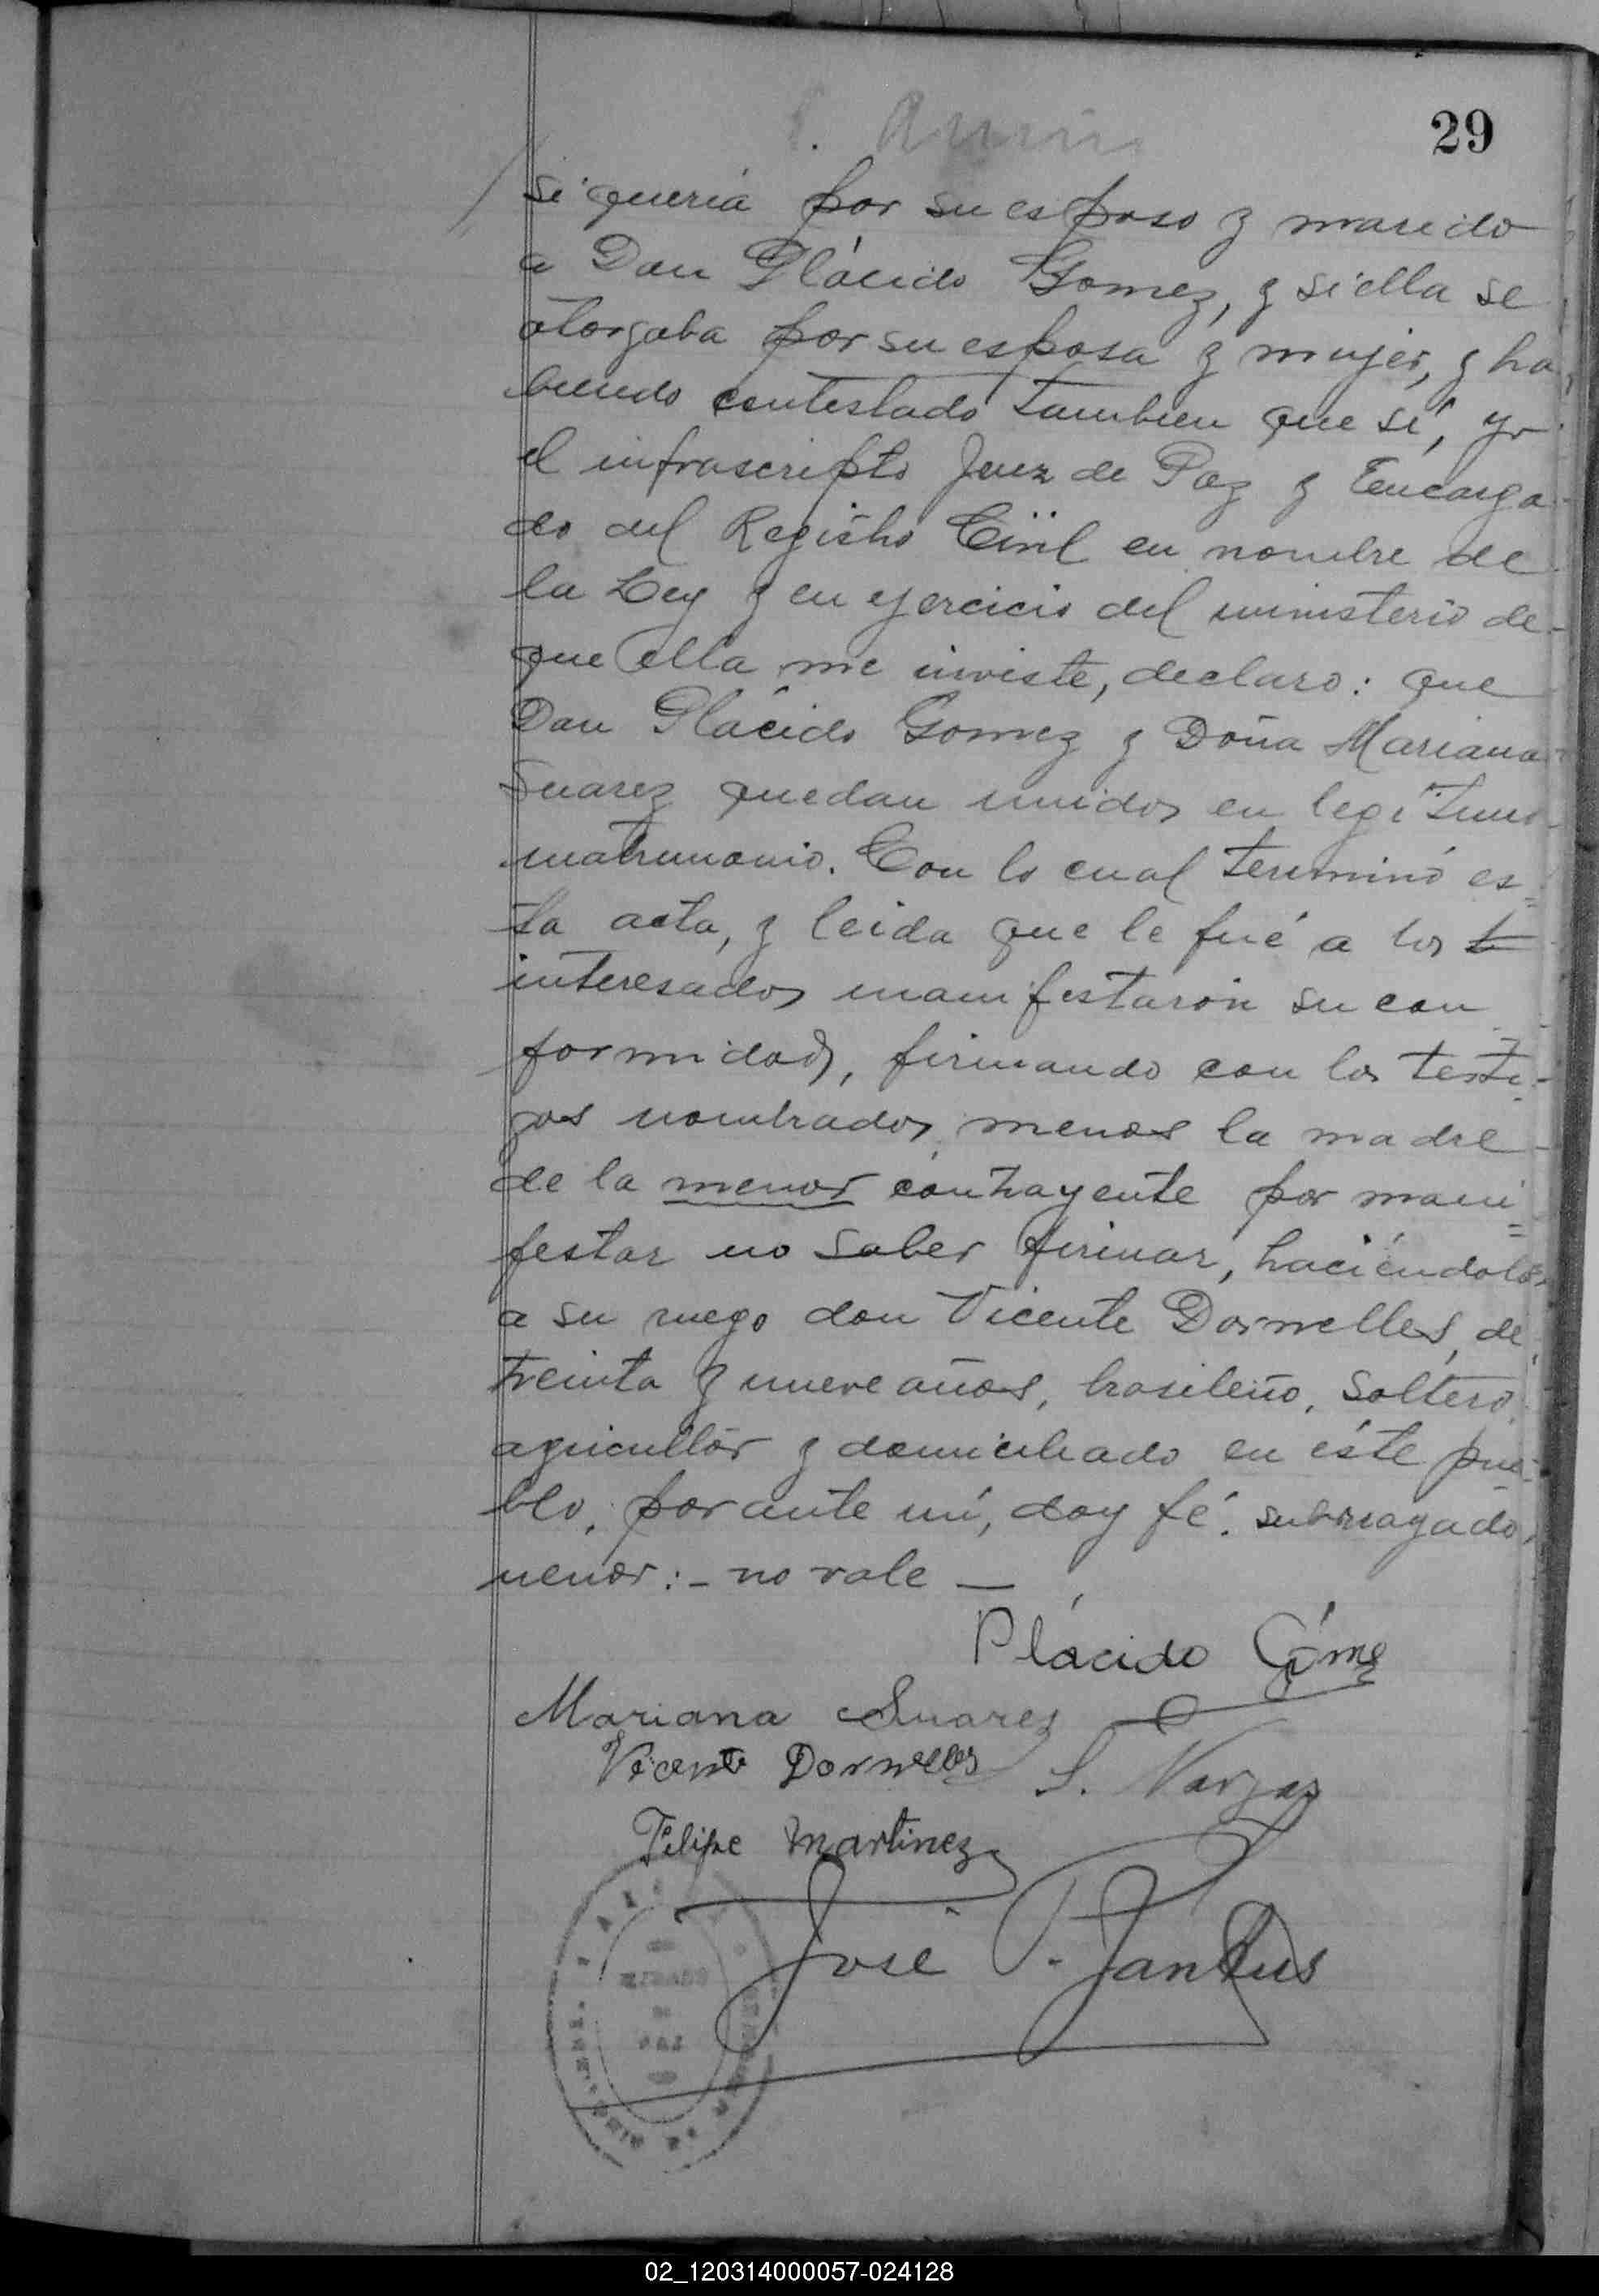 29
si queria por su esposo y marido
a Don Plácido Gomez, y si ella se
otorgaba por su esposa y mujer, y ha
biendo contestado tambien que sí, yo
el infrascripto Juez de Paz y Encarga
do del Registro Civil en nombre de
la Ley y en ejercicio del ministerio de
que ella me inviste, declaro: que
Don Plácido Gomez y Doña Mariana
Suarez quedan unidos en legitimo
matrimonio. Con lo cual terminó es=
ta acta, y leida que le fué a los
interesados manifestaron su con
formidad, firmando con los testi-
gos nombrados, menos la madre
de la menor contrayente por mani=
festar no saber firmar, haciéndolo
a su ruego don Vicente Dornelles, de
treinta y nueve años, brasileño, soltero,
agricultor y domiciliado en éste pue-
blo, por ante mí, doy fé. subrrayado,
menor:- no vale —
Plácido Gómez
Mariana Suarez
Vicente Dornelles S. Vargas
Felipe Martinez
José P.
02_120314000057-024128